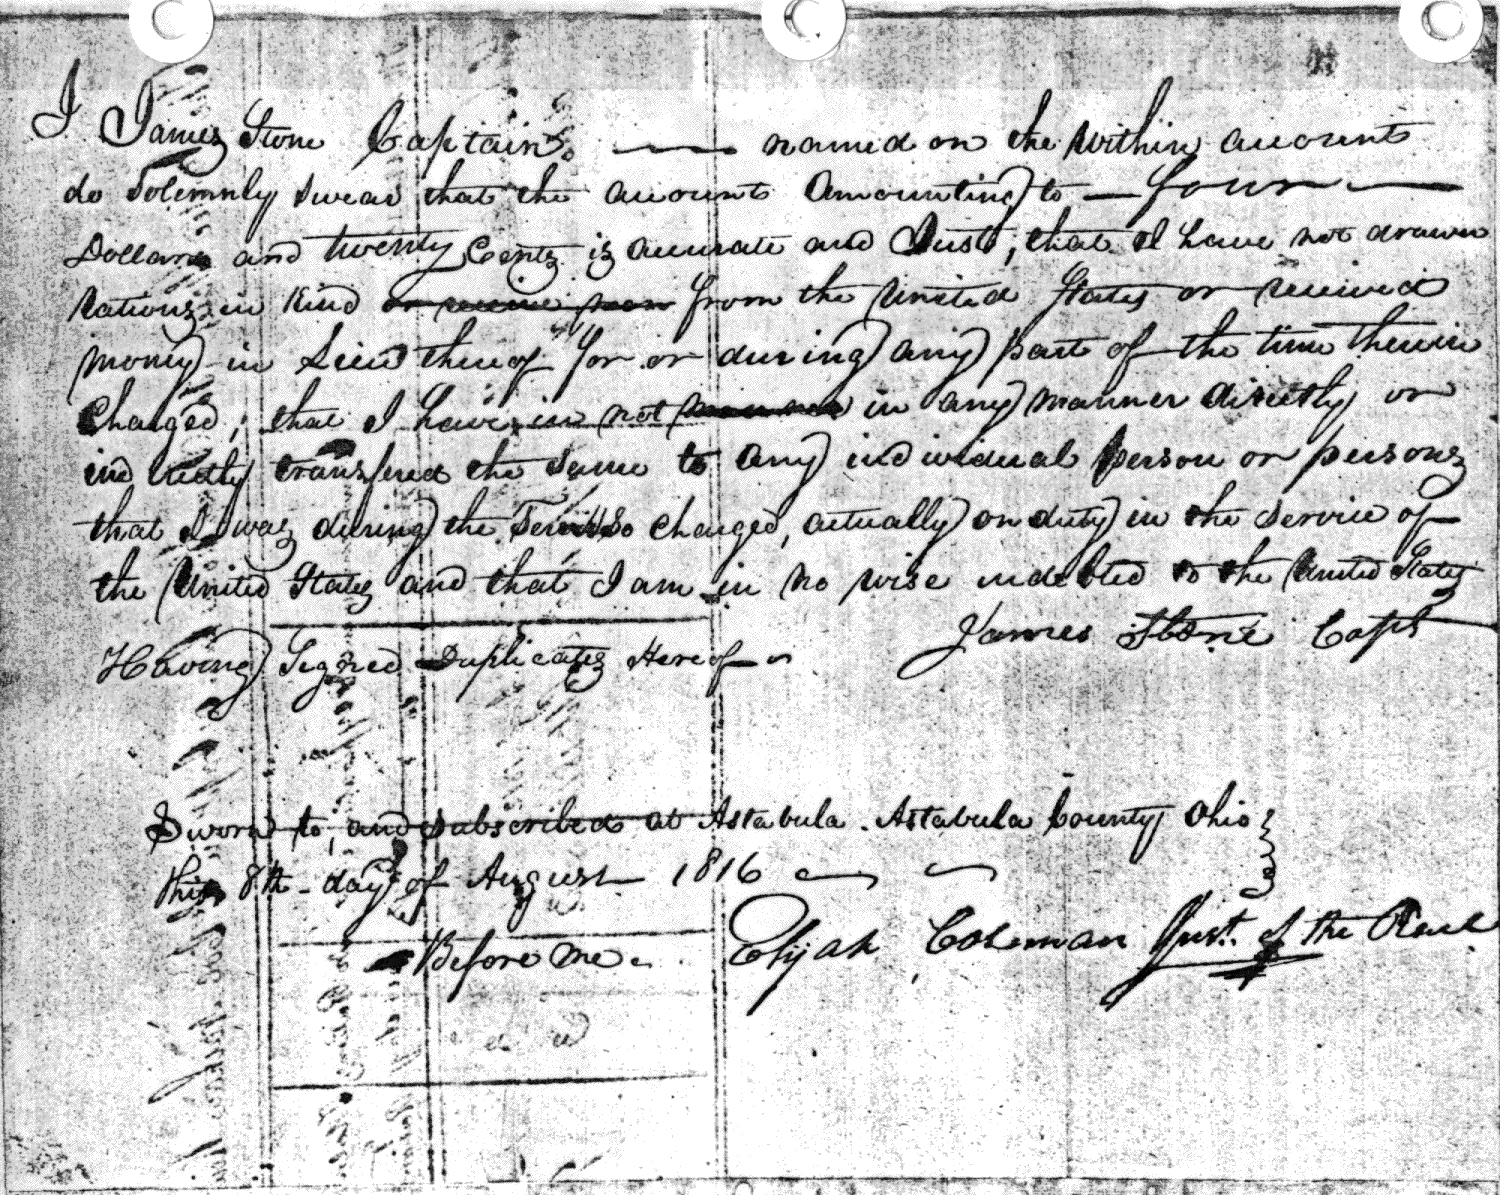 I James Stone Captain — named on the within account
do Solemnly Swear that the account amounting to — four —
Dollars and twenty Cents is accurate and Just, that I have not drawn
Rations in Kind from the United States or received
money in Lieu thereof for or during any part of the time therein
Charged; that I have not in any manner directly or
indirectly transfered the same to any individual person or persons
that I was during the so charged, actually on duty in the service of
the United States and that I am in no wise indebted to the United States
James Stone Capt
Having Signed Duplicates Hereof
Sworn to, and subscribed at Astabula. Astabula County Ohio
this 8th day of August 1816
Before me. Elijah Coleman Just. of the Peace